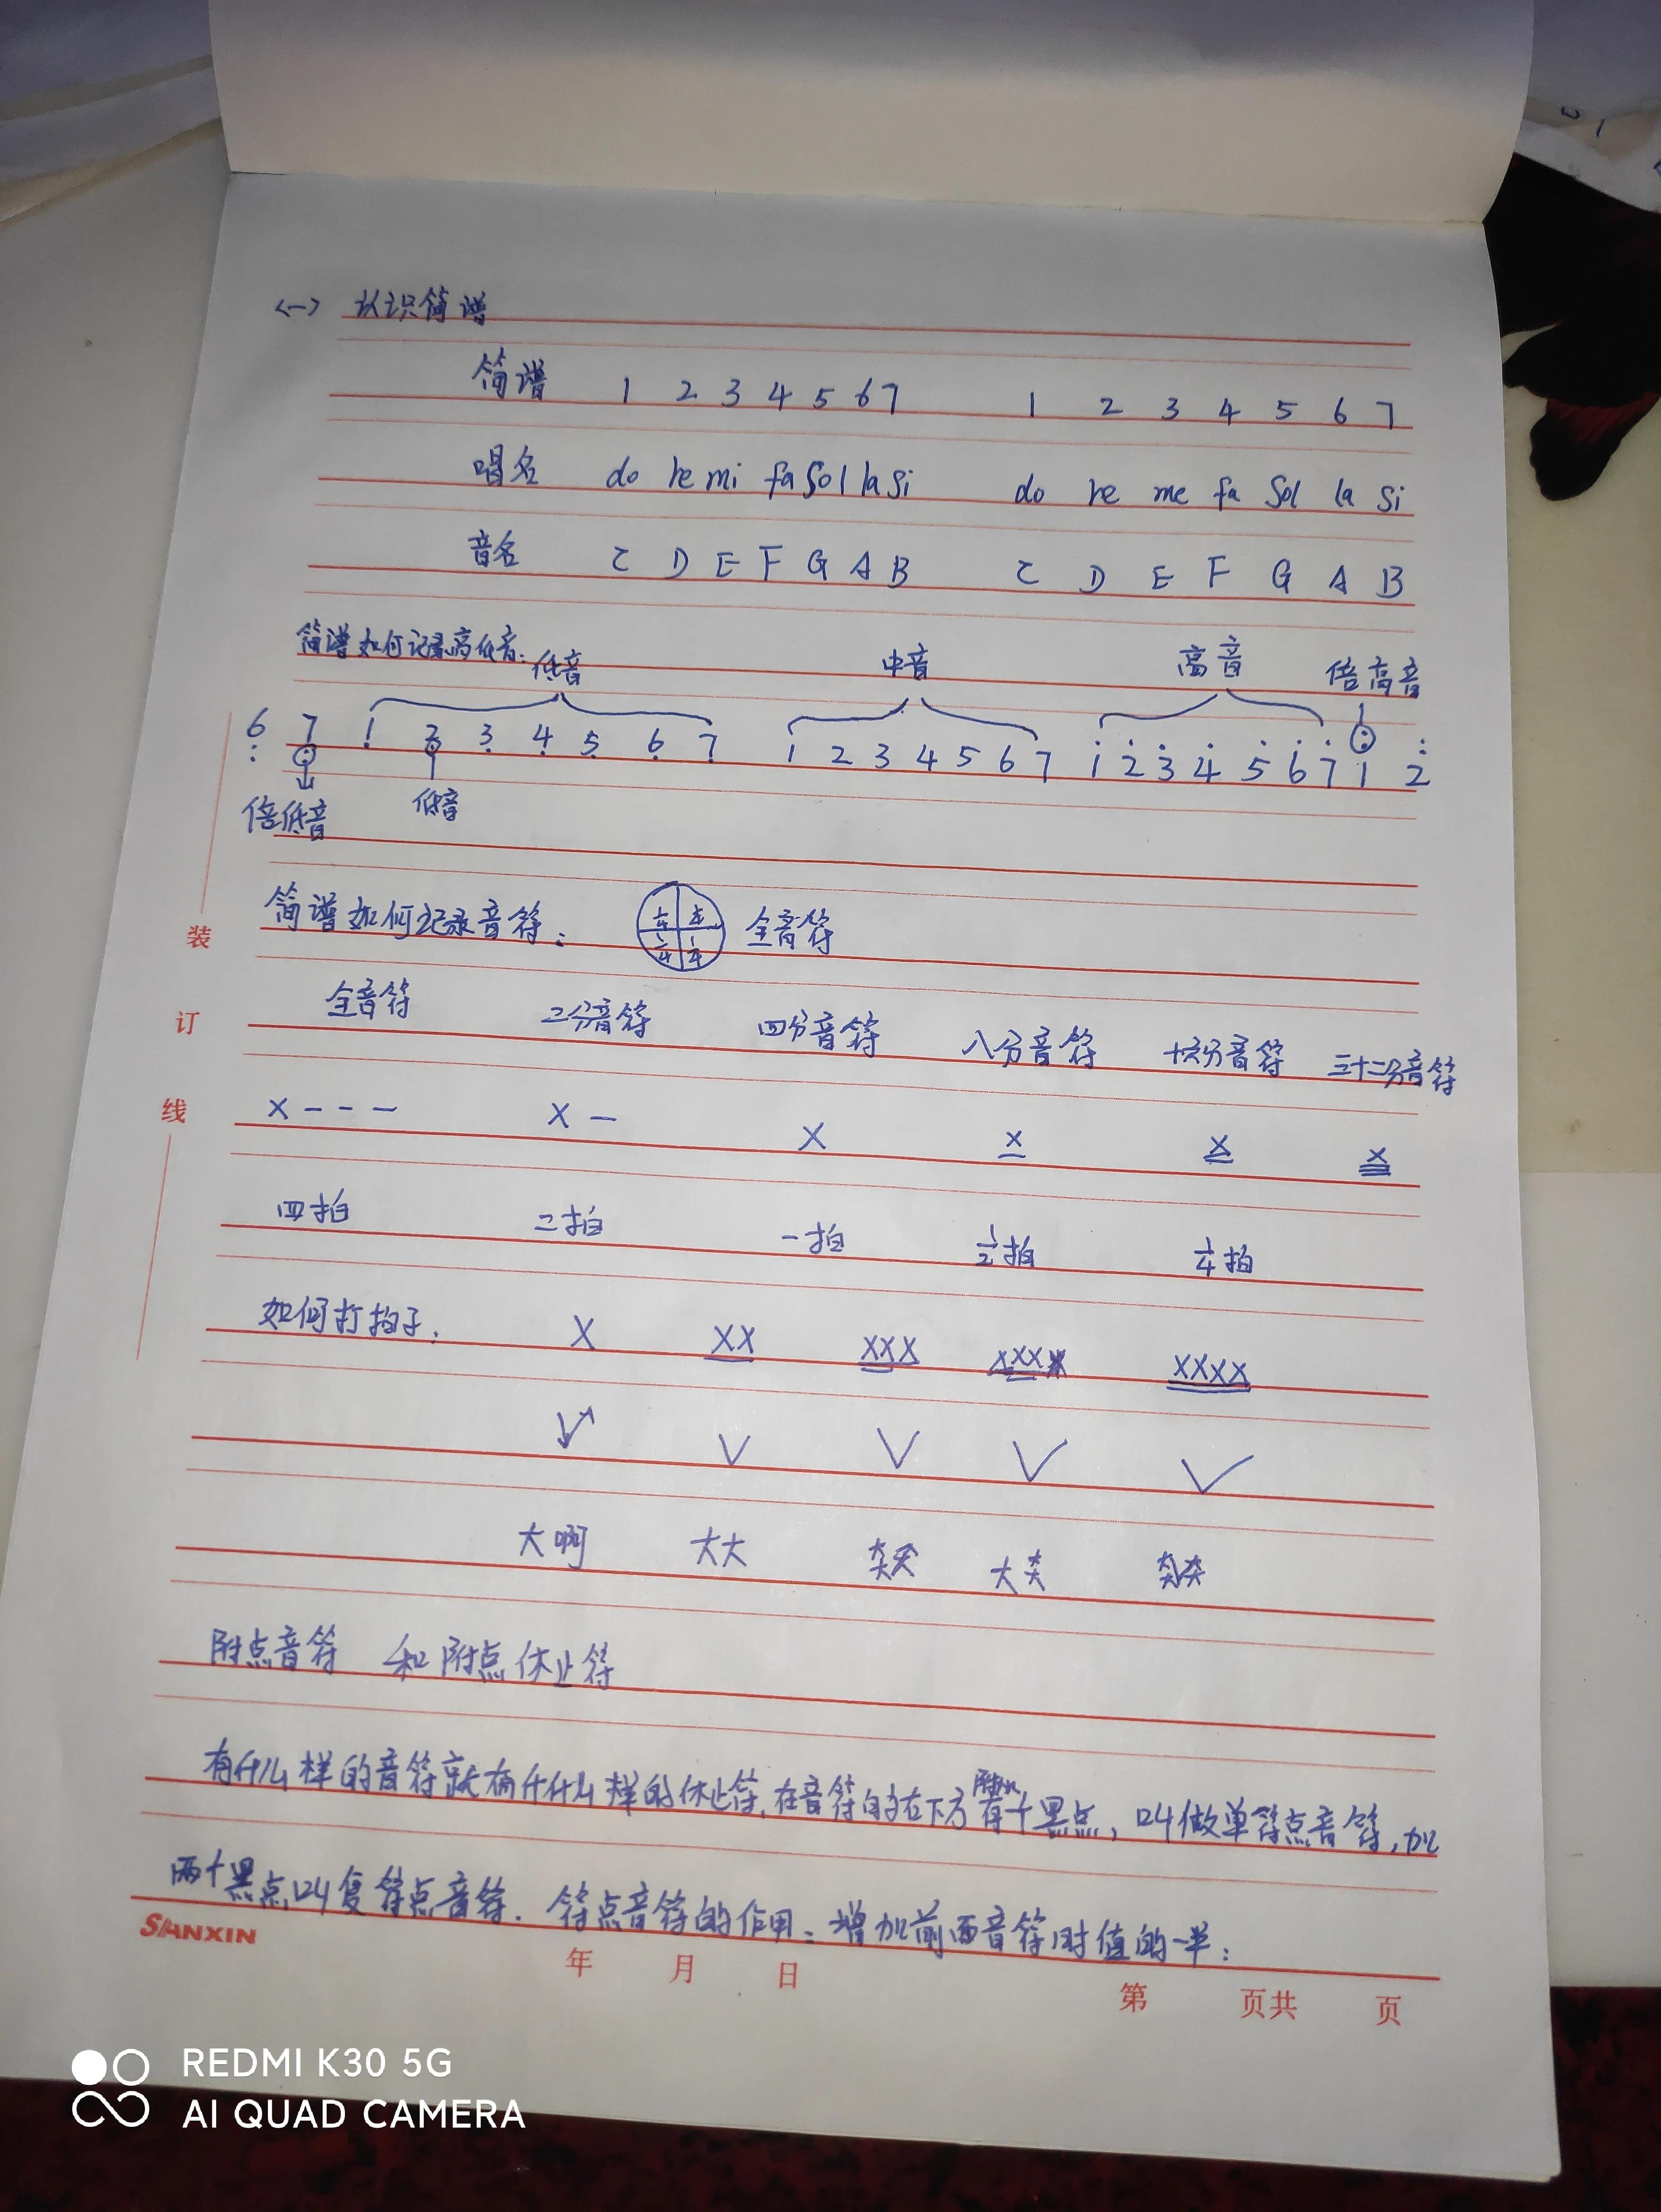 <一> 认识简谱
简谱 1 2 3 4 5 6 7 1 2 3 4 5 6 7
唱名 do re mi fa Sol la Si do re me fa Sol la Si
音名 C D E F G A B C D E F G A B
简谱如何记录高低音: 低音 中音 高音 倍高音
6 7 1 2 3 4 5 6 7 1 2 3 4 5 6 7 1 2 3 4 5 6 7 1 2
倍低音 低音
简谱如何记录音符: 1/4 1/4 1/4 1/4 全音符
装
订
线
全音符 二分音符 四分音符 八分音符 十六分音符 三十二分音符
X - - - X - X X X X
四拍 二拍 一拍 1/2拍 1/4拍
如何打拍子: X XX XXX XXX XXXX
大啊 大大 大大大 大大大 大大大大
附点音符 和附点休止符
有什么样的音符就有什么样的休止符,在音符的右下方附加有个黑点,叫做单符点音符,加
两个黑点叫复符点音符. 符点音符的作用:增加前面音符时值的一半:
SIANXIN
年 月 日 第 页共 页
REDMI K30 5G
AI QUAD CAMERA